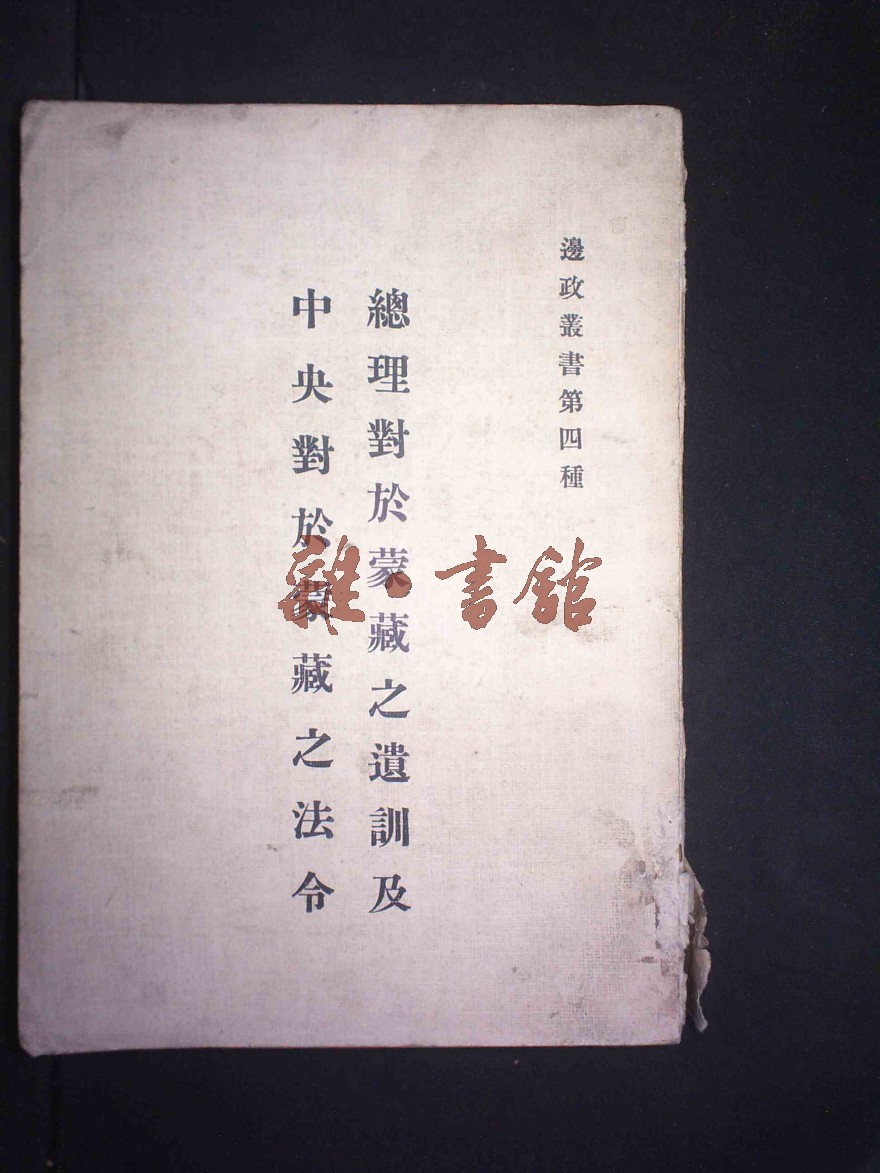 邊政叢書第四種
總理對於蒙藏之遺訓及
中央對於蒙藏之法令
雜·書館